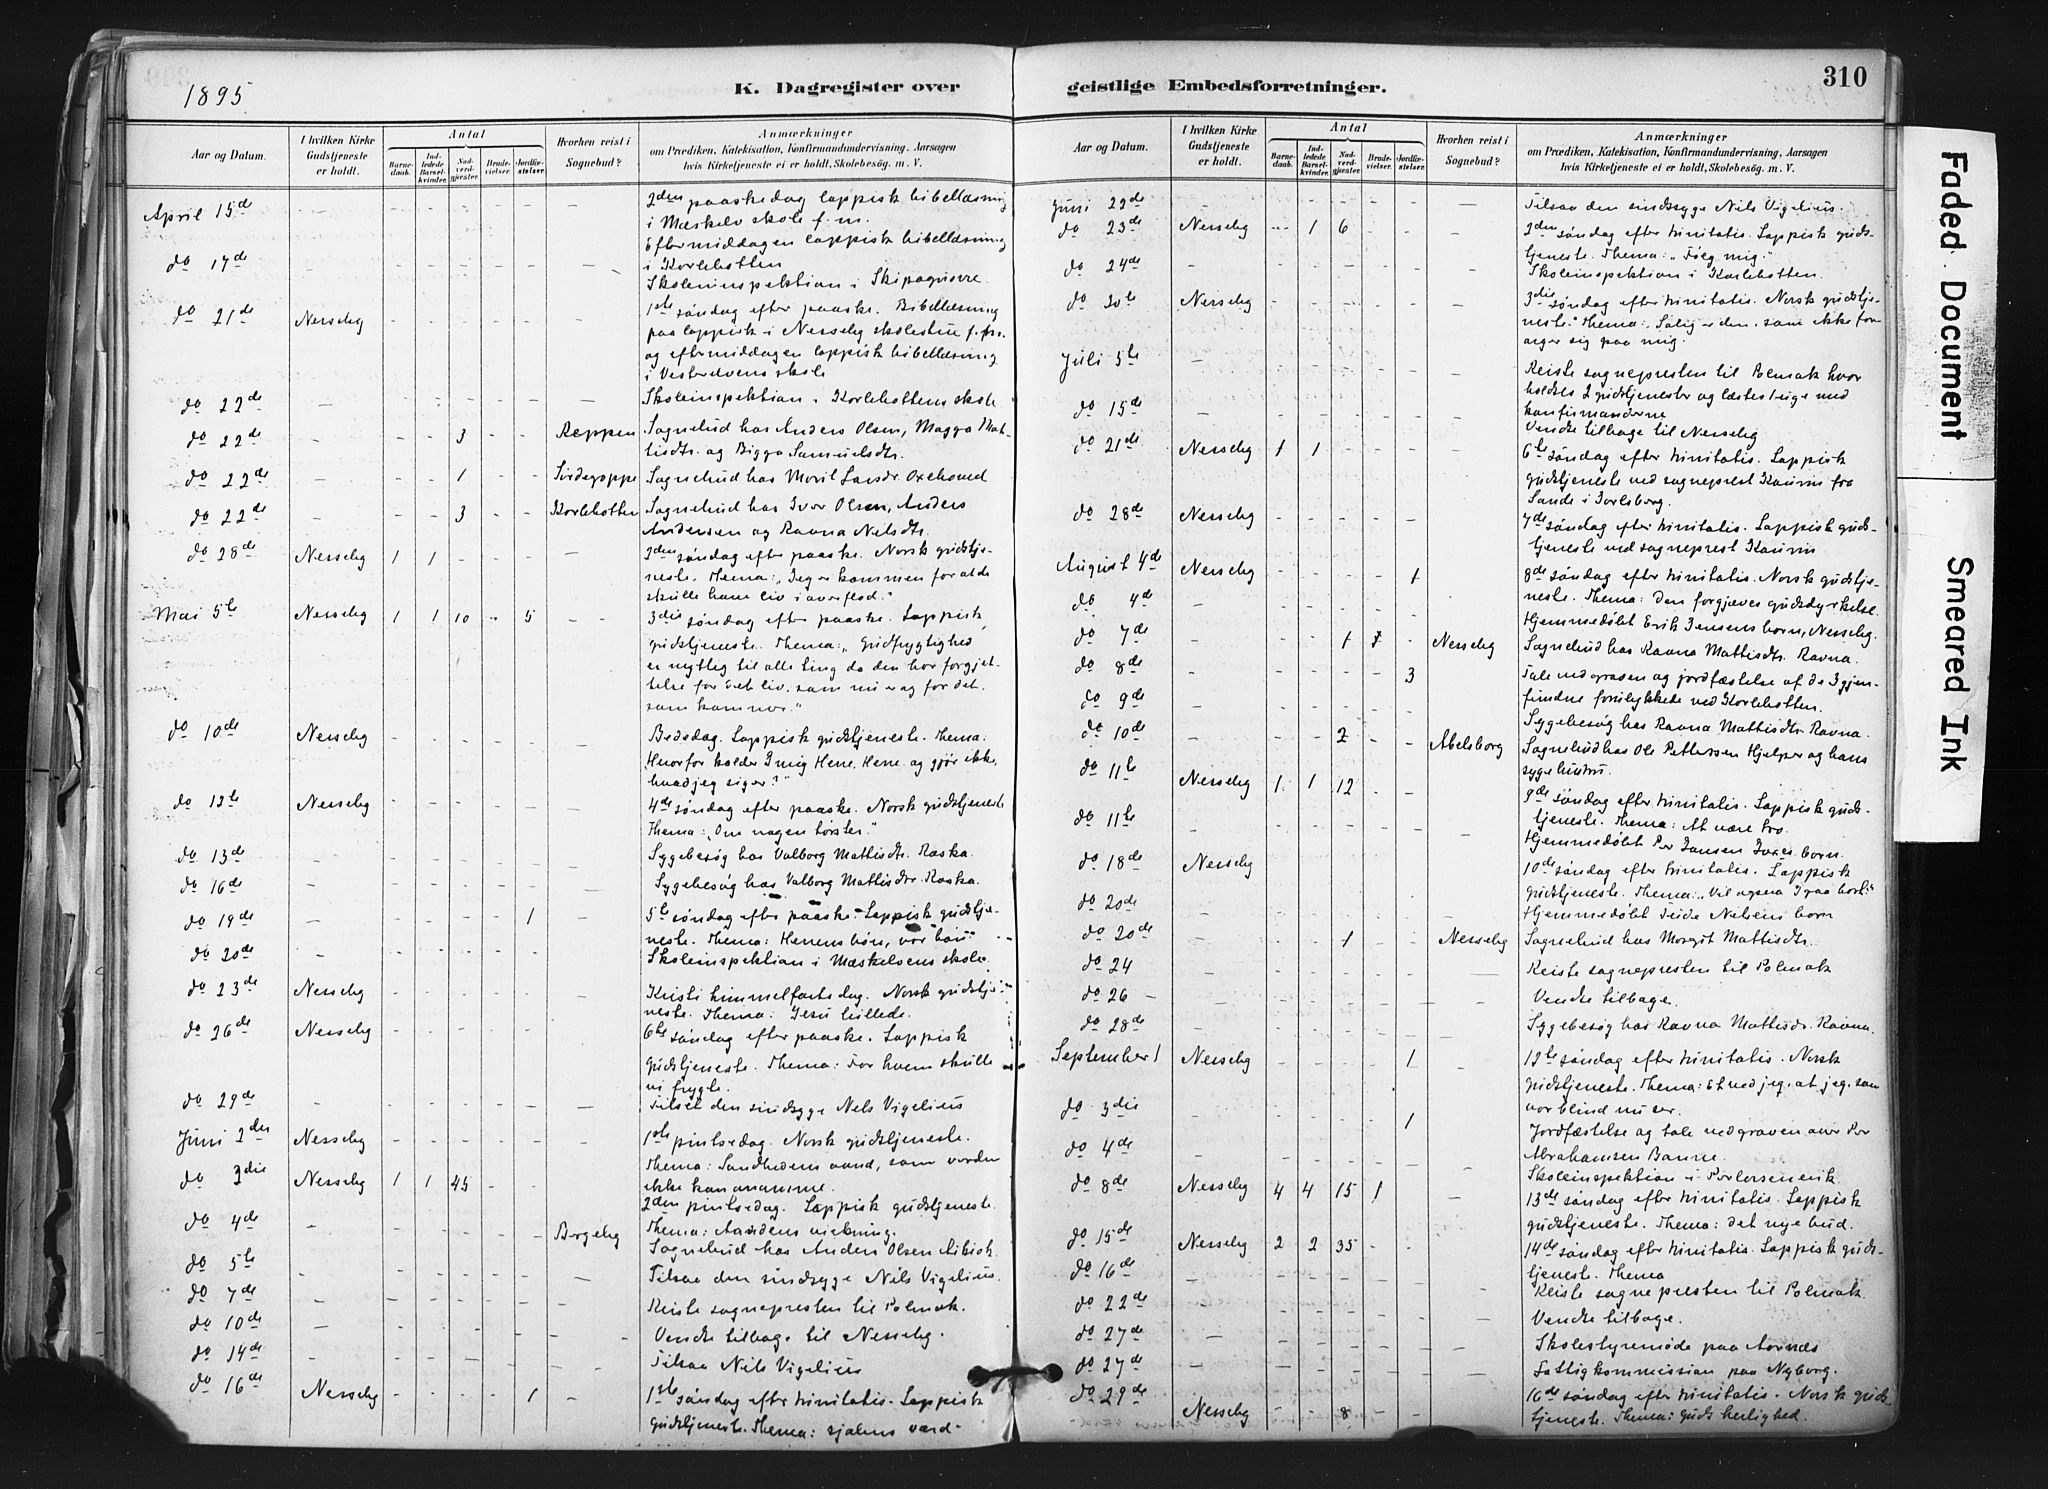 1895
K. Dagregister over
Aar og Datum.
I hvilken Kirke Gudstjeneste er holdt.
Antal
Barnedaab.
Indledede Barselkvinder.
Nadverdgjester.
Brudevielser.
Jordfæstelser.
Hvorhen reist i Sognebud?
Anmærkninger
om Prædiken, Katekisation, Konfirmandundervisning, Aarsagen
hvis Kirketjeneste ei er holdt, Skolebesøg. m. V.
April 15de - - - - - - - 2den paaskedag lappisk bibellæsning
i Mæskelv skole f.m.
Eftermiddagen lappisk bibellæsning
i Korlebotten
do 17de - - - - - - - Skoleinspektion i Skipagurre.
do 21de Nesseby - - - - - - 1ste søndag efter paaske. Bibellæsning
paa lappisk i Nesseby skolestue f.m.
og eftermiddagen lappisk bibellæsning
i Vesterelvens skole
do 22de - - - - - - - Skoleinspektion i Korlebottens skole
do 22de - - - 3 - - Reppen Sognebud hos Anders Olsen, Magga Mat-
tisdtr. og Bigga Samuelsdtr.
do 22de - - - 1 - - Sognebud hos Marit Larsdr
do 22de - - - 3 - - Korlebotten Sognebud hos Iver Olsen, Anders
Andersen og Ravna Nilsdtr.
do 28de Nesseby 1 1 - - - - 2den søndag efter paaske. Norsk gudstje-
neste. Thema: "Jeg er kommen for at de
skulle have liv i overflod."
Mai 5te Nesseby 1 1 10 - 5 - 3die søndag efter paaske. Lappisk
gudstjeneste. Thema: "Gudfrygtighed
er nyttig til alle ting da den har forgjet-
telse for det liv, som nu er og for det
som kommer."
do 10de Nesseby - - - - - - Bededag. Lappisk gudstjeneste. Thema:
"Hvorfor kalder I mig Herre, Herre og gjør ikke,
hvad jeg siger?"
do 12te Nesseby - - - - - - 4de søndag efter paaske. Norsk gudstjeneste
Thema: "Om nogen tørster."
do 13de - - - - - - - Sygebesøg hos Valborg Mattisdtr. Raska.
do 16de - - - - - - - Sygebesøg hos Valborg Mattisdtr. Raska.
do 19de - - - - - 1 - 5te søndag efter paaske. Lappisk gudstje-
neste. Thema: Herrens bøn, vor bøn
do 20de - - - - - - - Skoleinspektion i Mæskelvens skole.
do 23de Nesseby - - - - - - Kristi himmelfartsdag. Norsk gudstje-
neste. Thema: Jesu billede.
do 26de Nesseby - - - - - - 6te søndag efter paaske. Lappisk
gudstjeneste. Thema: For hvem skulle
vi frygte.
do 29de - - - - - - - Tilset den sindsyge Nils Vigelius
Juni 2den Nesseby - - - - - - 1ste pintsedag. Norsk gudstjeneste.
Thema: Sandhedens aand, som verden
ikke kan annamme.
do 3die Nesseby 1 1 45 - - 2den pintsedag. Lappisk gudstjeneste.
Thema: Aandens virkning.
do 4de - Bergeby Sognebud hos Anders Olsen
do 5te - - - - - - - Tilsaa den sindsyge Nils Vigelius.
do 7de - - - - - - - Reiste sognepresten til Polmak.
do 10de - - - - - - - Vendte tilbage til Nesseby.
do 14de - - - - - - - Tilsaa Nils Vigelius
do 16de Nesseby - - - - 1 - 1ste søndag efter trinitatis. Lappisk
gudstjeneste. Thema: sjælens værd-
geistlige Embedsforretninger.
310
Aar og Datum.
I hvilken Kirke Gudstjeneste er holdt.
Antal
Barnedaab.
Indledede Barselkvinder.
Nadverdgjester.
Brudevielser.
Jordfæstelser.
Hvorhen reist i Sognebud?
Anmærkninger
om Prædiken, Katekisation, Konfirmandundervisning, Aarsagen
hvis Kirketjeneste ei er holdt, Skolebesøg. m. V.
Juni 22de - - - - - - - Tilsaa den sindsyge Nils Vigelius.
do 23de Nesseby - 1 6 - - - 2den søndag efter trinitatis. Lappisk guds-
tjeneste. Thema: "Følg mig."
do 24de - - - - - - - Skoleinspektion i Korlebotten.
do 30te Nesseby - - - - - - 3die søndag efter trinitatis. Norsk gudstje-
neste. Thema: "Salig er den, som ikke for-
arger sig paa mig.
Juli 5te - - - - - - - Reiste sognepresten til Polmak hvor
holdtes 2 gudstjenester og læstes 1 uge med
konfirmanderne
do 15de - - - - - - - Vendte tilbage til Nesseby
do 21de Nesseby 1 1 - - - - 6te søndag efter trinitatis. Lappisk
gudstjeneste ved sogneprest Kaurin fra
Sande i Jarlsberg.
do 28de Nesseby - - - - - - 7de søndag efter trinitatis. Lappisk guds-
tjeneste ved sogneprest Kaurin
August 4de Nesseby - - - - 1 - 8de søndag efter trinitatis. Norsk gudstje-
neste. Thema: Den forgjæves gudsdyrkelse.
do 4de - - - - - - - Hjemmedøbt Erik Jensens barn, Nesseby.
do 7de - - - 1 - - Nesseby Sognebud hos Ravna Mattisdtr. Ravna.
do 8de - - - - - 3 - Tale ved graven og jordfæstelse af de 3 gjen-
fundne forulykkede ved Korlebotten.
do 9de - - - - - - - Sygebesøg hos Ravna Mattisdtr. Ravna.
do 10de - - - 2 - - Abelsborg Sognebud hos Ole Pettersen Hjelper og hans
syge hustru.
do 11te Nesseby 1 1 12 - - 9de søndag efter trinitatis. Lappisk guds-
tjeneste. Thema: At være tro.
do 11te - - - - - - - Hjemmedøbt Per Jansen barn.
do 18de Nesseby - - - - - - 10de søndag efter trinitatis. Lappisk
gudstjeneste. Thema: "Vil ogsaa I gaa bort?"
do 20de - - - - - - - Hjemmedøbt Nilsens barn
do 20de - - - 1 - - Nesseby Sognebud hos Margit Mattisdtr.
do 24 - - - - - - - Reiste sognepresten til Polmak
do 26 - - - - - - - Vendte tilbage.
do 28de - - - - - - - Sygebesøg hos Ravna Mattisdr. Ravna.
September 1 Nesseby - - - - 1 - 12te søndag efter trinitatis. Norsk
gudstjeneste. Thema: Et ved jeg, at jeg, som
var blind nu ser.
do 3die - - - - - 1 - Jordfæstelse og tale ved graven over Per
Abrahamsen Banne.
do 4de - - - - - - - Skoleinspektion i
do 8de Nesseby 4 4 15 1 - 13de søndag efter trinitatis. Lappisk
gudstjeneste. Thema: det nye bud.
do 15de Nesseby 2 2 35 - - 14de søndag efter trinitatis. Lappisk guds-
tjeneste. Thema
do 16de - - - - - - - Reiste sognepresten til Polmak
do 22de - - - - - - - Vendte tilbage.
do 27de - - - - - - - Skolestyremøde paa
do 27de - - - - - - - Fattigkommission paa Nyborg.
do 29de Nesseby - - 8 - - 16de søndag efter trinitatis. Norsk guds-
tjeneste. Thema: Guds herlighed.
Faded Document
Smeared Ink